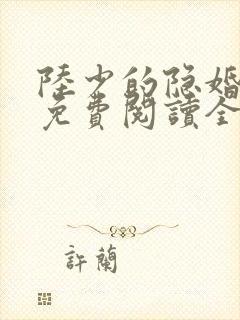 陸少的隐婚
免費閱讀全
許蘭